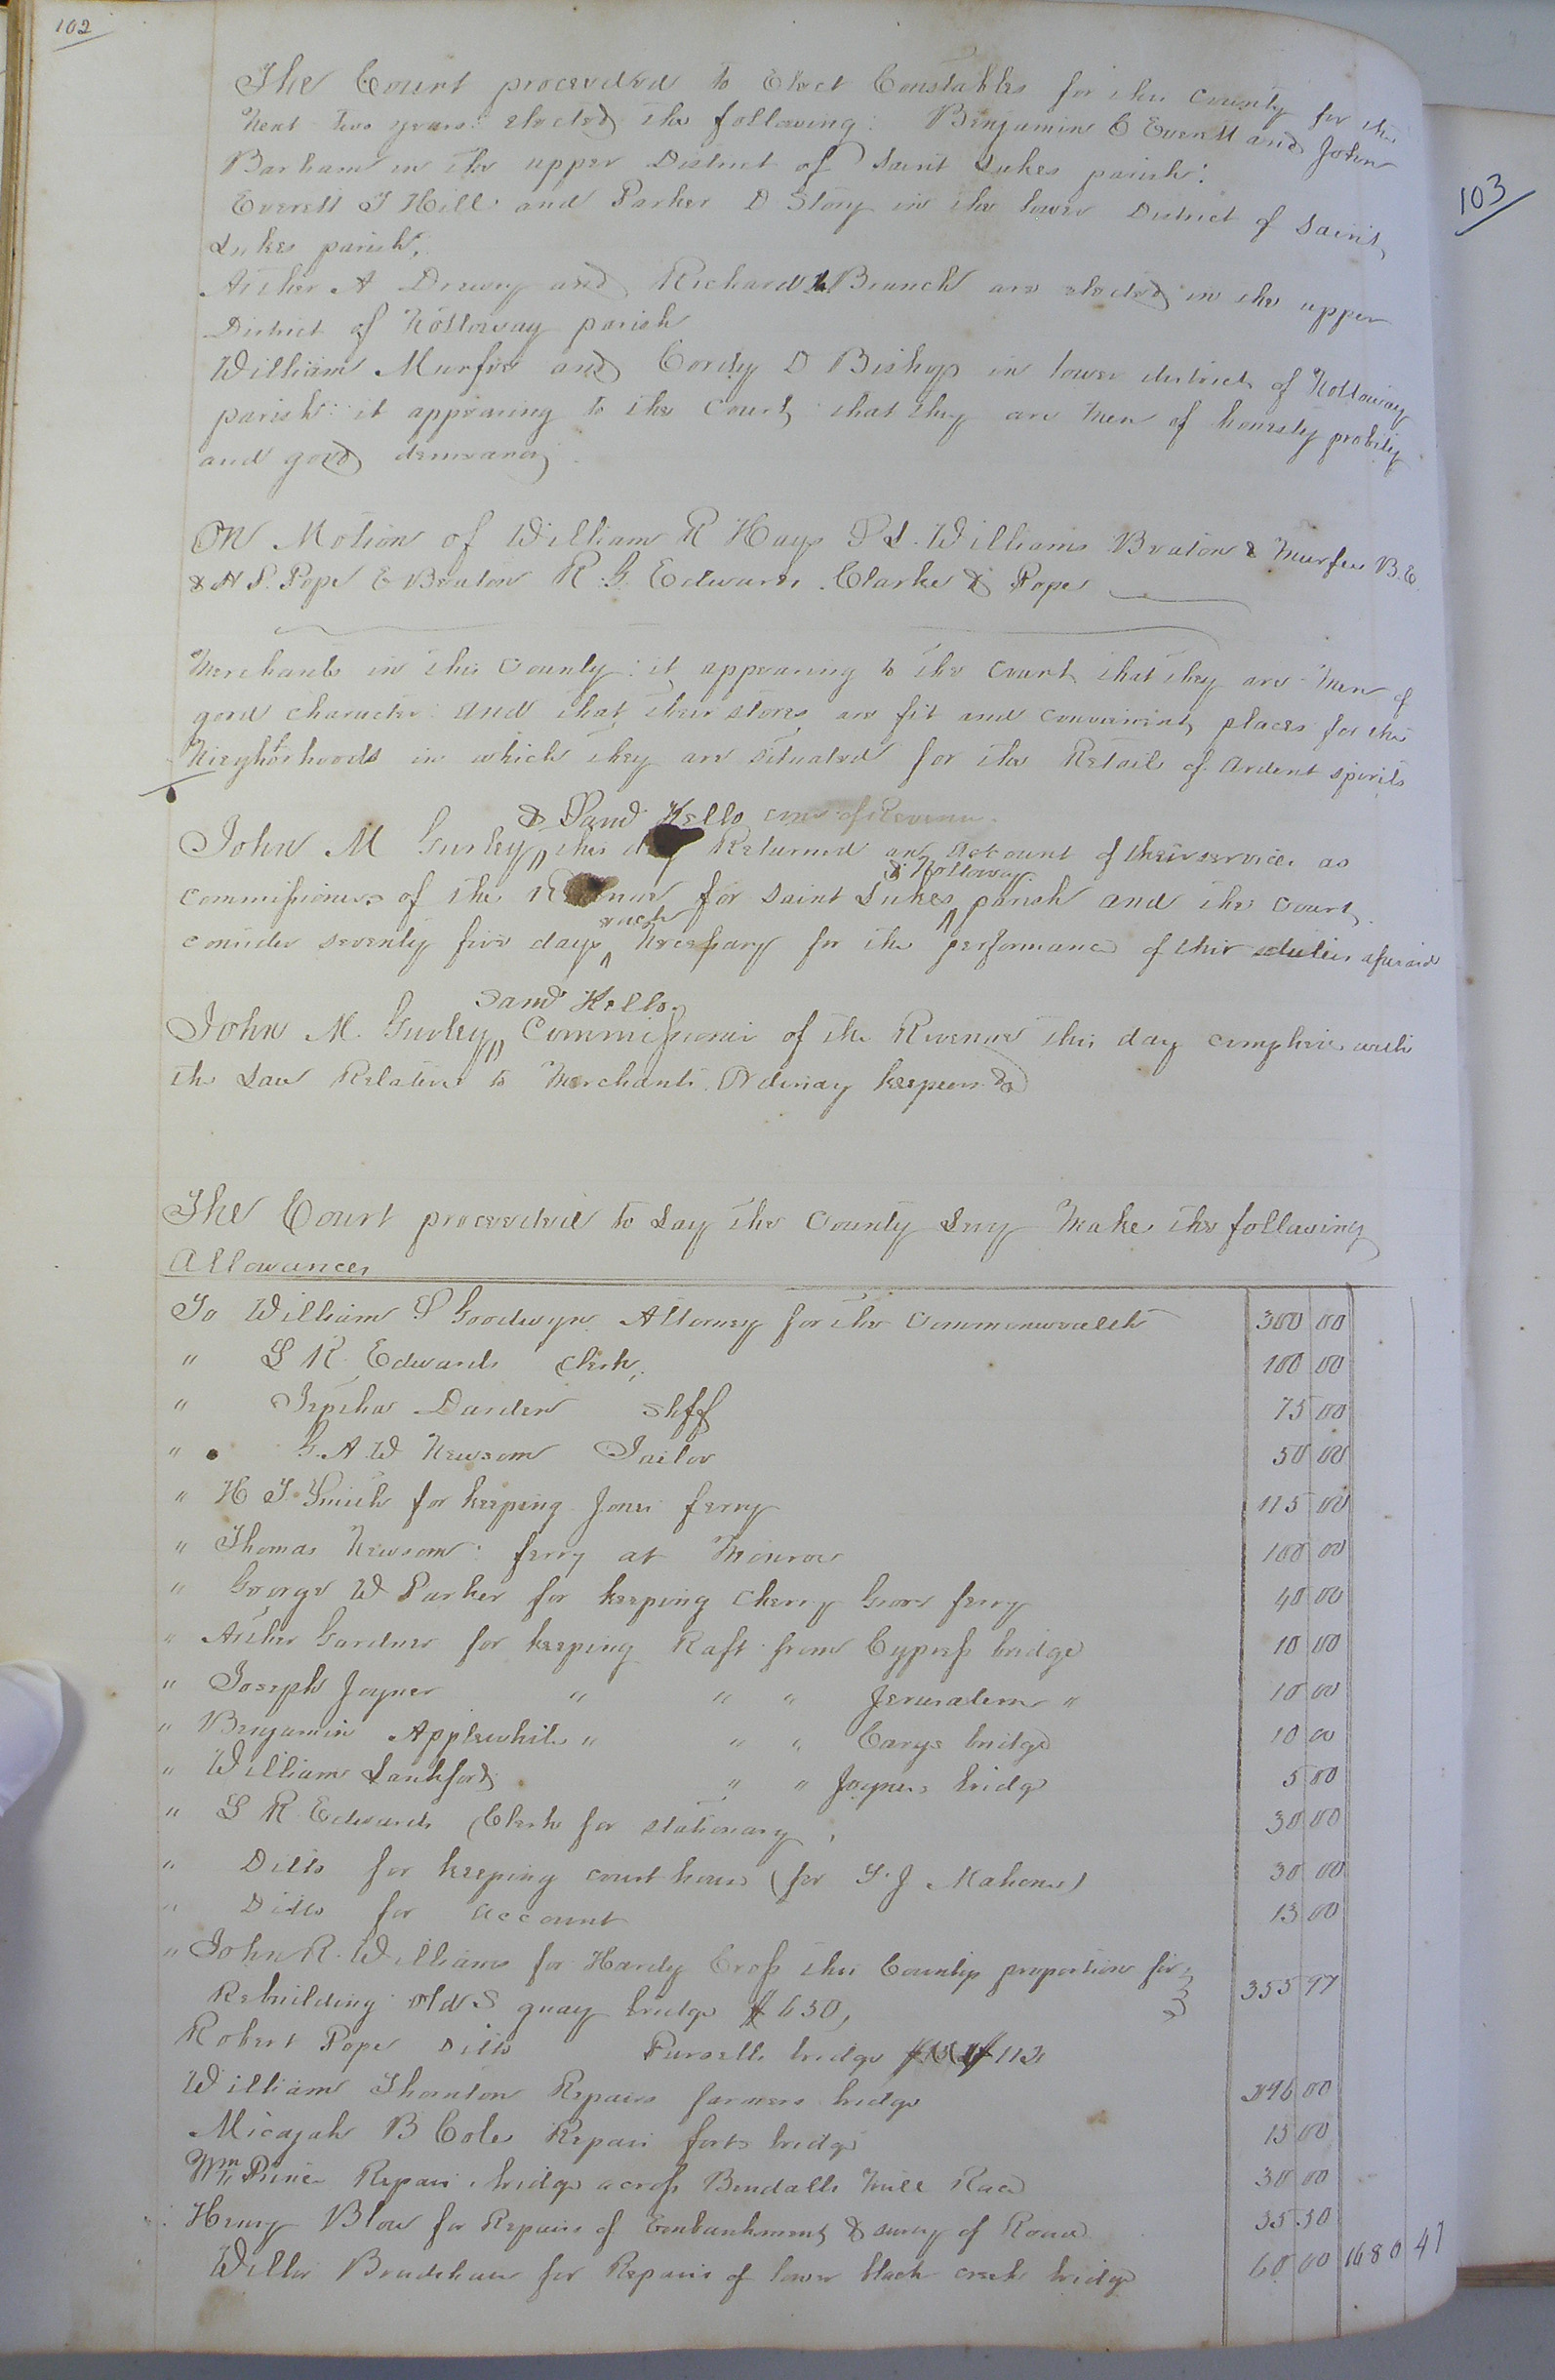 102
The Court proceeded to Elect Constables for this County for the
Next two years: elected the following: Benjamin C Everett and John
Barham in the upper District of Saint Lukes parish:
Everett J Hill and Parker D Story in the lower District of Saint
Lukes parish.
Archer A Drewry and Richard Branch are elected in the upper
District of Nottoway parish
William Murfee and Cordy D Bishop in lower district of Nottoway
parish: it appearing to the Court that they are Men of honesty probity
and good demeanor
On Motion of William R Hays P L Williams Beaton & Murfee B. E.
& A P. Pope E Beaton R. G. Edwards. Clarke & Pope
Merchants in this County: it appearing to the Court that they are Men of
good character and that their stores are fit and convenient places for the
Nieghborhoods in which they are situated for the Retail of Ardent spirits
& Saml Kello com of Revenue
John M Gurley this day Returned an Account of their services as
& Nottoway
commissioners of the Revenue for Saint Lukes parish and the Court
each
consider seventy five days necessary for the performance of their duties aforesaid
Saml Kello
John M. Gurley Commissioner of the Revenue this day complied with
the Law Relative to Merchants Ordinary keepers &c
The Court proceeded to Lay the County Levy Make the following
Allowances
To William S Goodwyn Attorney for the Commonwealth 300 00
" L R Edwards Clerk, 100 00
" Jeptha Darden Shff 75 00
" G. A. W Newsom Jailor 50 00
" H J. Smith for keeping Jones ferry 115 00
" Thomas Newsom: ferry at Monroe 100 00
" George W Parker for keeping Cherry Grove ferry 40 00
" Archer Gardner for keeping Raft from Cypress bridge 10 00
" Joseph Joyner " " " Jerusalem " 10 00
" Benjamin Applewhite " " " Carys bridge 10 00
" William Lankford " " Joyners bridge 5 00
" L R Edwards Clerk for stationary, 30 00
" Ditto for keeping court house (for J. J Mahone) 30 00
" Ditto for account 13 00
" John R. Williams for Hardy Cross this Countys proportion for
Rebuilding old S quay bridge $ 650, 355 97
Robert Pope Ditto Pursells bridge 113
William Thornton Repairs farmers bridge 96 00
Micajah B Cole Repair forts bridge 15 00
Wm Prince Repair bridge across Bendalls Mill Race 30 00
Henry Blow for Repairs of Embankment & survy of Road 35 50
Willis Bradshaw for Repairs of lower black creek bridge 60 00 1680 47
103